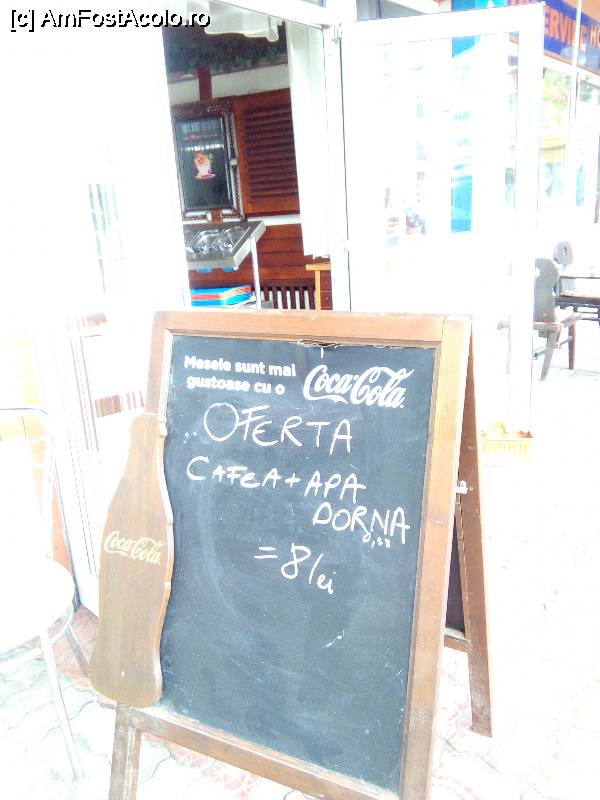 [c] AmFostAcolo.ro
Mesele sunt mai
gustoase cu o Coca-Cola
OFERTA
CAFEA + APA
DORNA
= 8 lei
Coca-Cola